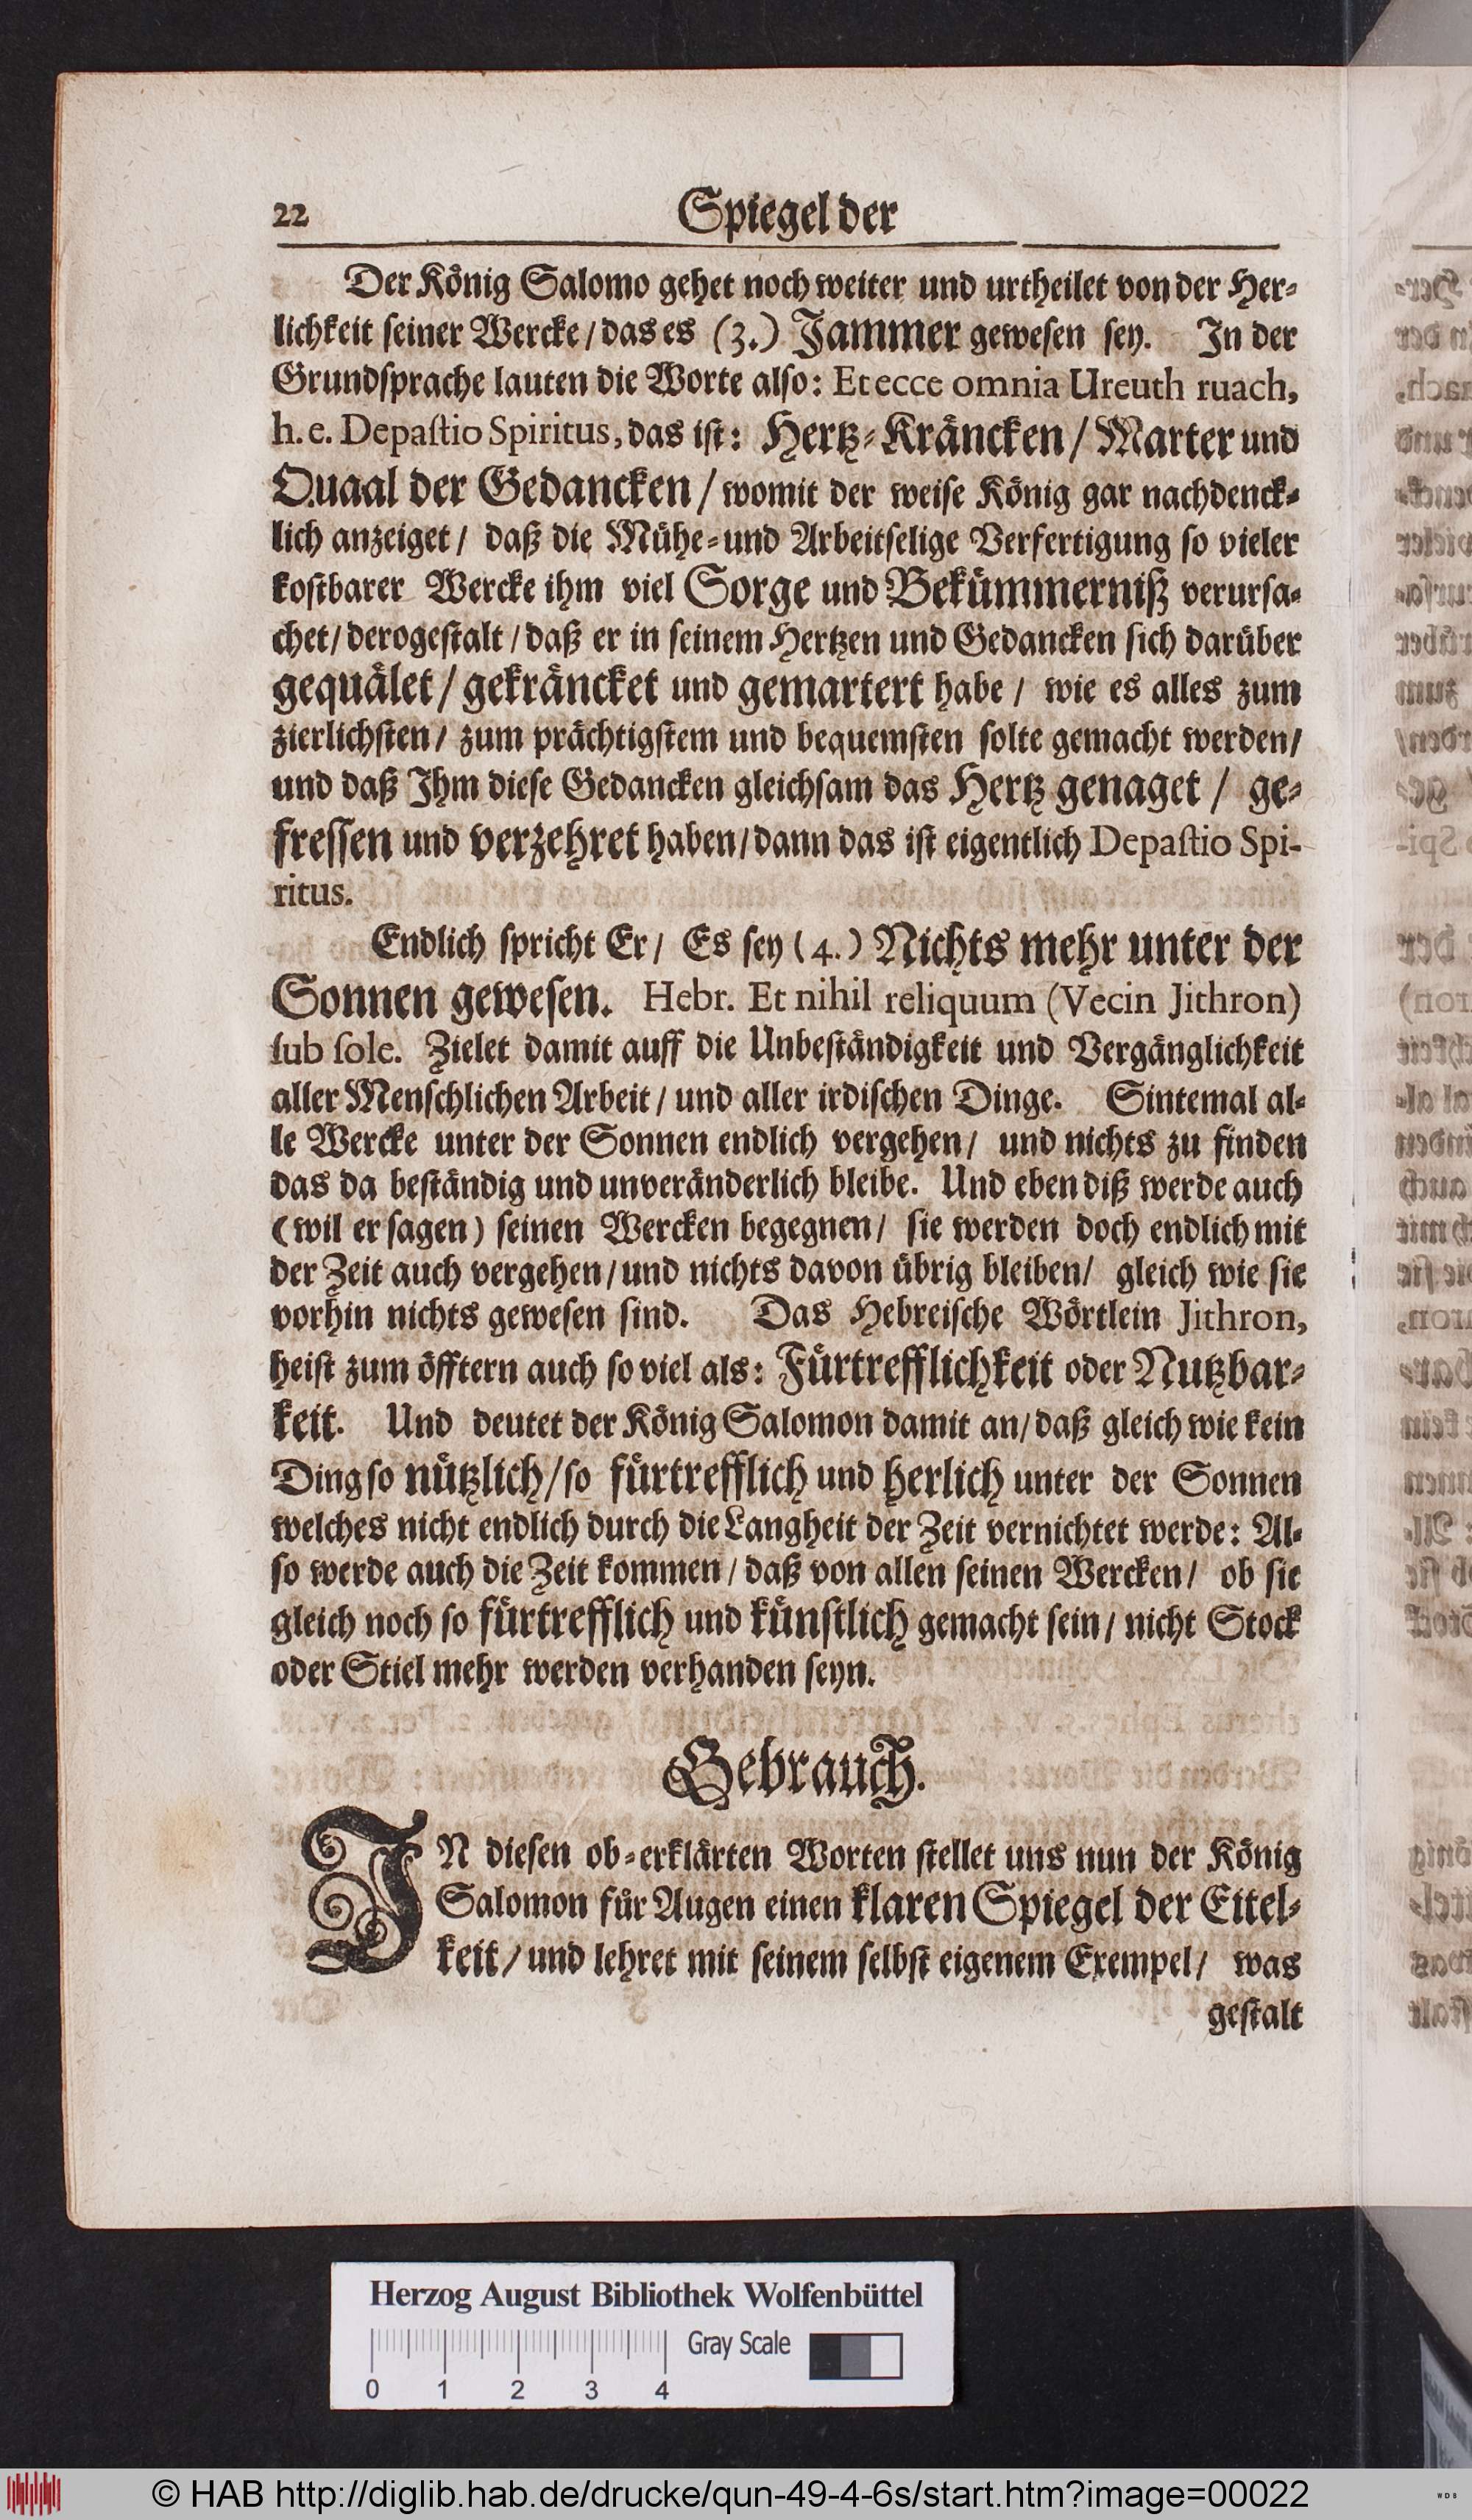 22 Spiegel der
Der König Salomo gehet noch weiter und urtheilet von der Her-
lichkeit seiner Wercke / das es (3.) Jammer gewesen sey. In der
Grundsprache lauten die Worte also: Et ecce omnia Ureuth ruach,
h. e. Depaſtio Spiritus, das ist: Hertz-Kräncken / Marter und
Quaal der Gedancken / womit der weise König gar nachdenck-
lich anzeiget / daß die Mühe-und Arbeitselige Verfertigung so vieler
kostbarer Wercke ihm viel Sorge und Bekümmerniß verursa-
chet / derogestalt / daß er in seinem Hertzen und Gedancken sich darüber
gequälet / gekräncket und gemartert habe / wie es alles zum
zierlichsten / zum prächtigstem und bequemsten solte gemacht werden /
und daß Ihm diese Gedancken gleichsam das Hertz genaget / ge-
fressen und verzehret haben / dann das ist eigentlich Depaſtio Spi-
ritus.
Endlich spricht Er / Es sey (4.) Nichts mehr unter der
Sonnen gewesen. Hebr. Et nihil reliquum (Vecin Jithron)
ſub ſole. Zielet damit auff die Unbeständigkeit und Vergänglichkeit
aller Menschlichen Arbeit / und aller irdischen Dinge. Sintemal al-
le Wercke unter der Sonnen endlich vergehen / und nichts zu finden
das da beständig und unveränderlich bleibe. Und eben diß werde auch
(wil er sagen) seinen Wercken begegnen / sie werden doch endlich mit
der Zeit auch vergehen / und nichts davon übrig bleiben / gleich wie sie
vorhin nichts gewesen sind. Das Hebreische Wörtlein Jithron,
heist zum öfftern auch so viel als: Fürtrefflichkeit oder Nutzbar-
keit. Und deutet der König Salomon damit an / daß gleich wie kein
Ding so nützlich / so fürtrefflich und herlich unter der Sonnen
welches nicht endlich durch die Langheit der Zeit vernichtet werde: Al-
so werde auch die Zeit kommen / daß von allen seinen Wercken / ob sie
gleich noch so fürtrefflich und künstlich gemacht sein / nicht Stock
oder Stiel mehr werden verhanden seyn.
Gebrauch.
IN diesen ob-erklärten Worten stellet uns nun der König
Salomon für Augen einen klaren Spiegel der Eitel-
keit / und lehret mit seinem selbst eigenem Exempel / was
gestalt
Herzog August Bibliothek Wolfenbüttel
Gray Scale
0 1 2 3 4
© HAB http://diglib.hab.de/drucke/qun-49-4-6s/start.htm?image=00022
WDB